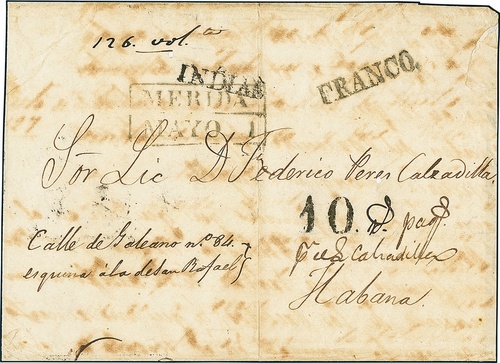 126. vol.ta
INDIAS
FRANCO.
MERIDA
MAYO 1
Sor Lic D. Federico Peres Calzadilla.
10. pag.
Calle de Galeano n.o 84.
esquina á la de San Rafael
Calzadilla
Habana.